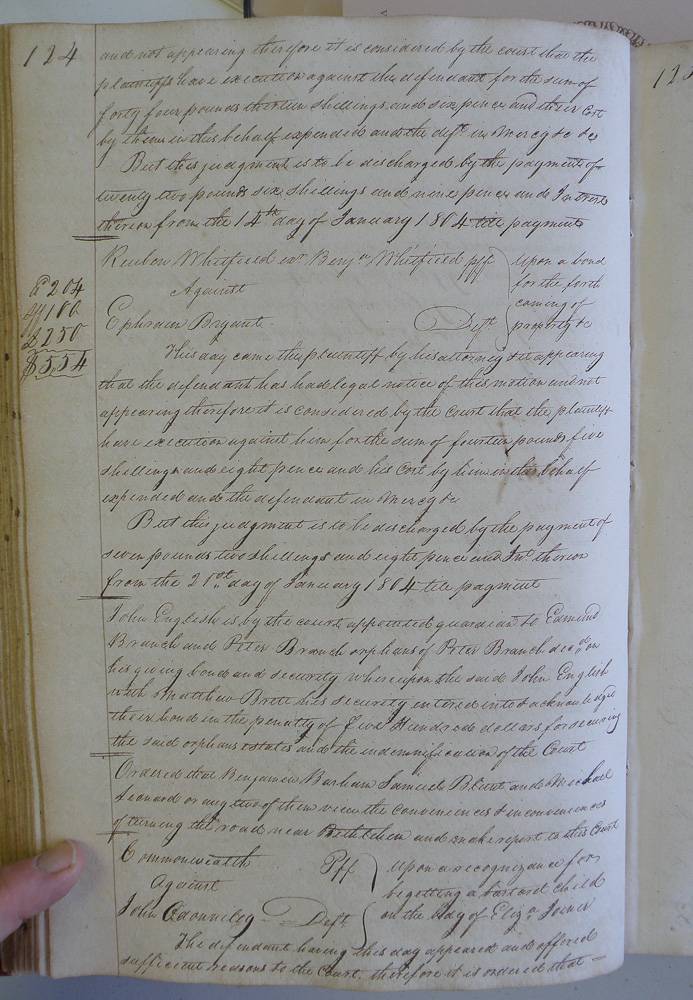 124
and not appearing therefore it is considered by the court that the
plaintiffs have execution against the defendant for the sum of
forty four pounds thirteen shillings and six pence and their Cost
by them in this behalf expended and the deft in Mercy &c &c
But this judgment is to be discharged by the payment of
twenty two pounds six shillings and nine pence and Interest
thereon from the 14th day of January 1804 till payment
Reuben Whitfield exr Benjn Whitfield plff
Against
Ephraim Bryant Deft
upon a bond
for the forth
coming of
property &c
204
100
250
$5.54
This day came the plaintiff by his attorney & it appearing
that the defendant has had legal notice of this motion and not
appearing therefore it is considered by the Court that the plaintiff
have execution against him for the sum of fourteen pounds five
shillings and eight pence and his Cost by him in this behalf
expended and the defendant in Mercy &c
But this judgment is to be discharged by the payment of
seven pounds two shillings and eight pence and Int. thereon
from the day of January 1804 till payment
John English is by the court appointed guardian to Edmund
Branch and Peter Branch orphans of Peter Branch decd on
his giving bond and security whereupon the said John English
with Matthew Britt his security entered into & acknowledged
their bond in the penalty of five Hundred dollars for securing
the said orphans estates and the indemnification of the Court
Ordered that Benjamin Barham Samuel Blunt and Michael
Leonard or any two of them view the conveniences & inconveniences
of turning the road near Bethlehem and make report to this Court
Commonwealth Plff
Against
John Deft
upon a recognizance for
begetting a bastard child
on the body of Eliza Joiner
The defendant having this day appeared and offered
sufficient reasons to the Court, therefore it is ordered that